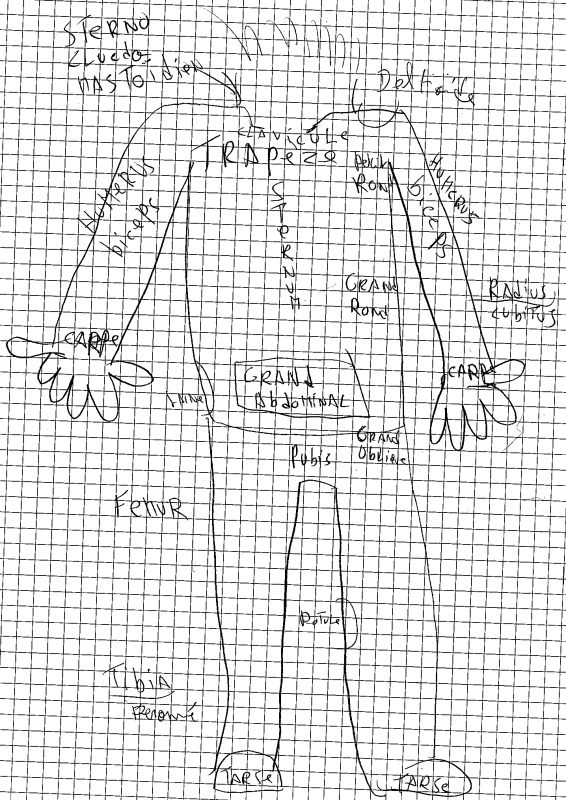 STERNO
CLUEdo
MASTOïdien
Deltoïde
CLAVICULE
TRAPEZE
Petit
Rond
HUMERUS
biceps
HUMERUS
biceps
STERNUM
GRAND
Rond
Radius
cubitus
CARPE
CARPE
GRAND
AbdoMINAL
GRAND
Oblique
Pubis
FéMUR
Rotule
Tibia
Peroné
TARSE
TARSE